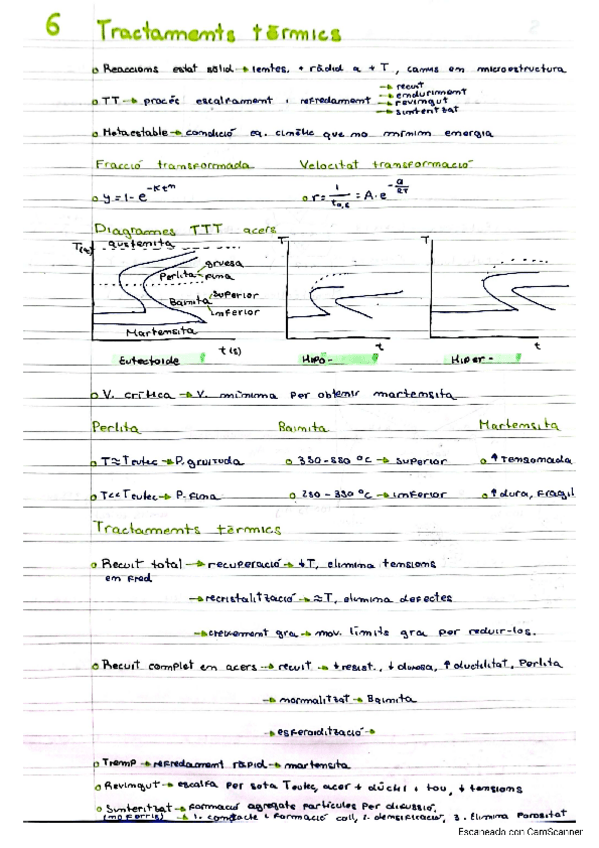 6 Tractaments tèrmics
Reaccions estat sòlid → lentes, + ràpid a + T, canvis en microestructura
→ recuit
→ enduriment
TT → procés escalfament i refredament → revingut
→ sinteritzat
Metaestable → condició eq. cinètic que no mínim energia
Fracció transformada Velocitat transformació
y = 1 - e^-Kt^n r = 1/t0,5 = A·e^-Q/RT
Diagrames TTT acers
T(ºC) austenita T T
Perlita gruesa
fina
Bainita superior
inferior
Martensita
t(s) t t
Eutectoide Hipo- Hiper-
V. crítica → V. mínima per obtenir martensita
Perlita Bainita Martensita
T≈Teutec → P. gruixuda 350-550 ºC → superior ↑ tensionada
T<<Teutec → P. fina 250-350 ºC → inferior ↑ dura, fràgil
Tractaments tèrmics
Recuit total → recuperació → ↓T, elimina tensions
en fred
→ recristalització → ≈T, elimina defectes
→ creixement gra → mov. límits gra per reduir-los.
Recuit complet en acers → recuit → ↓resist., ↓duresa, ↑ductilitat, Perlita
→ normalitzat → Bainita
→ esferoidització →
Tremp → refredament ràpid → martensita
Revingut → escalfa per sota Teutec, acer + dúctil + tou, ↓ tensions
Sinteritzat → formació agregats partícules per difussió.
(no ferris) → 1. contacte i formació coll, 2. densificació, 3. Elimina porositat
Escaneado con CamScanner